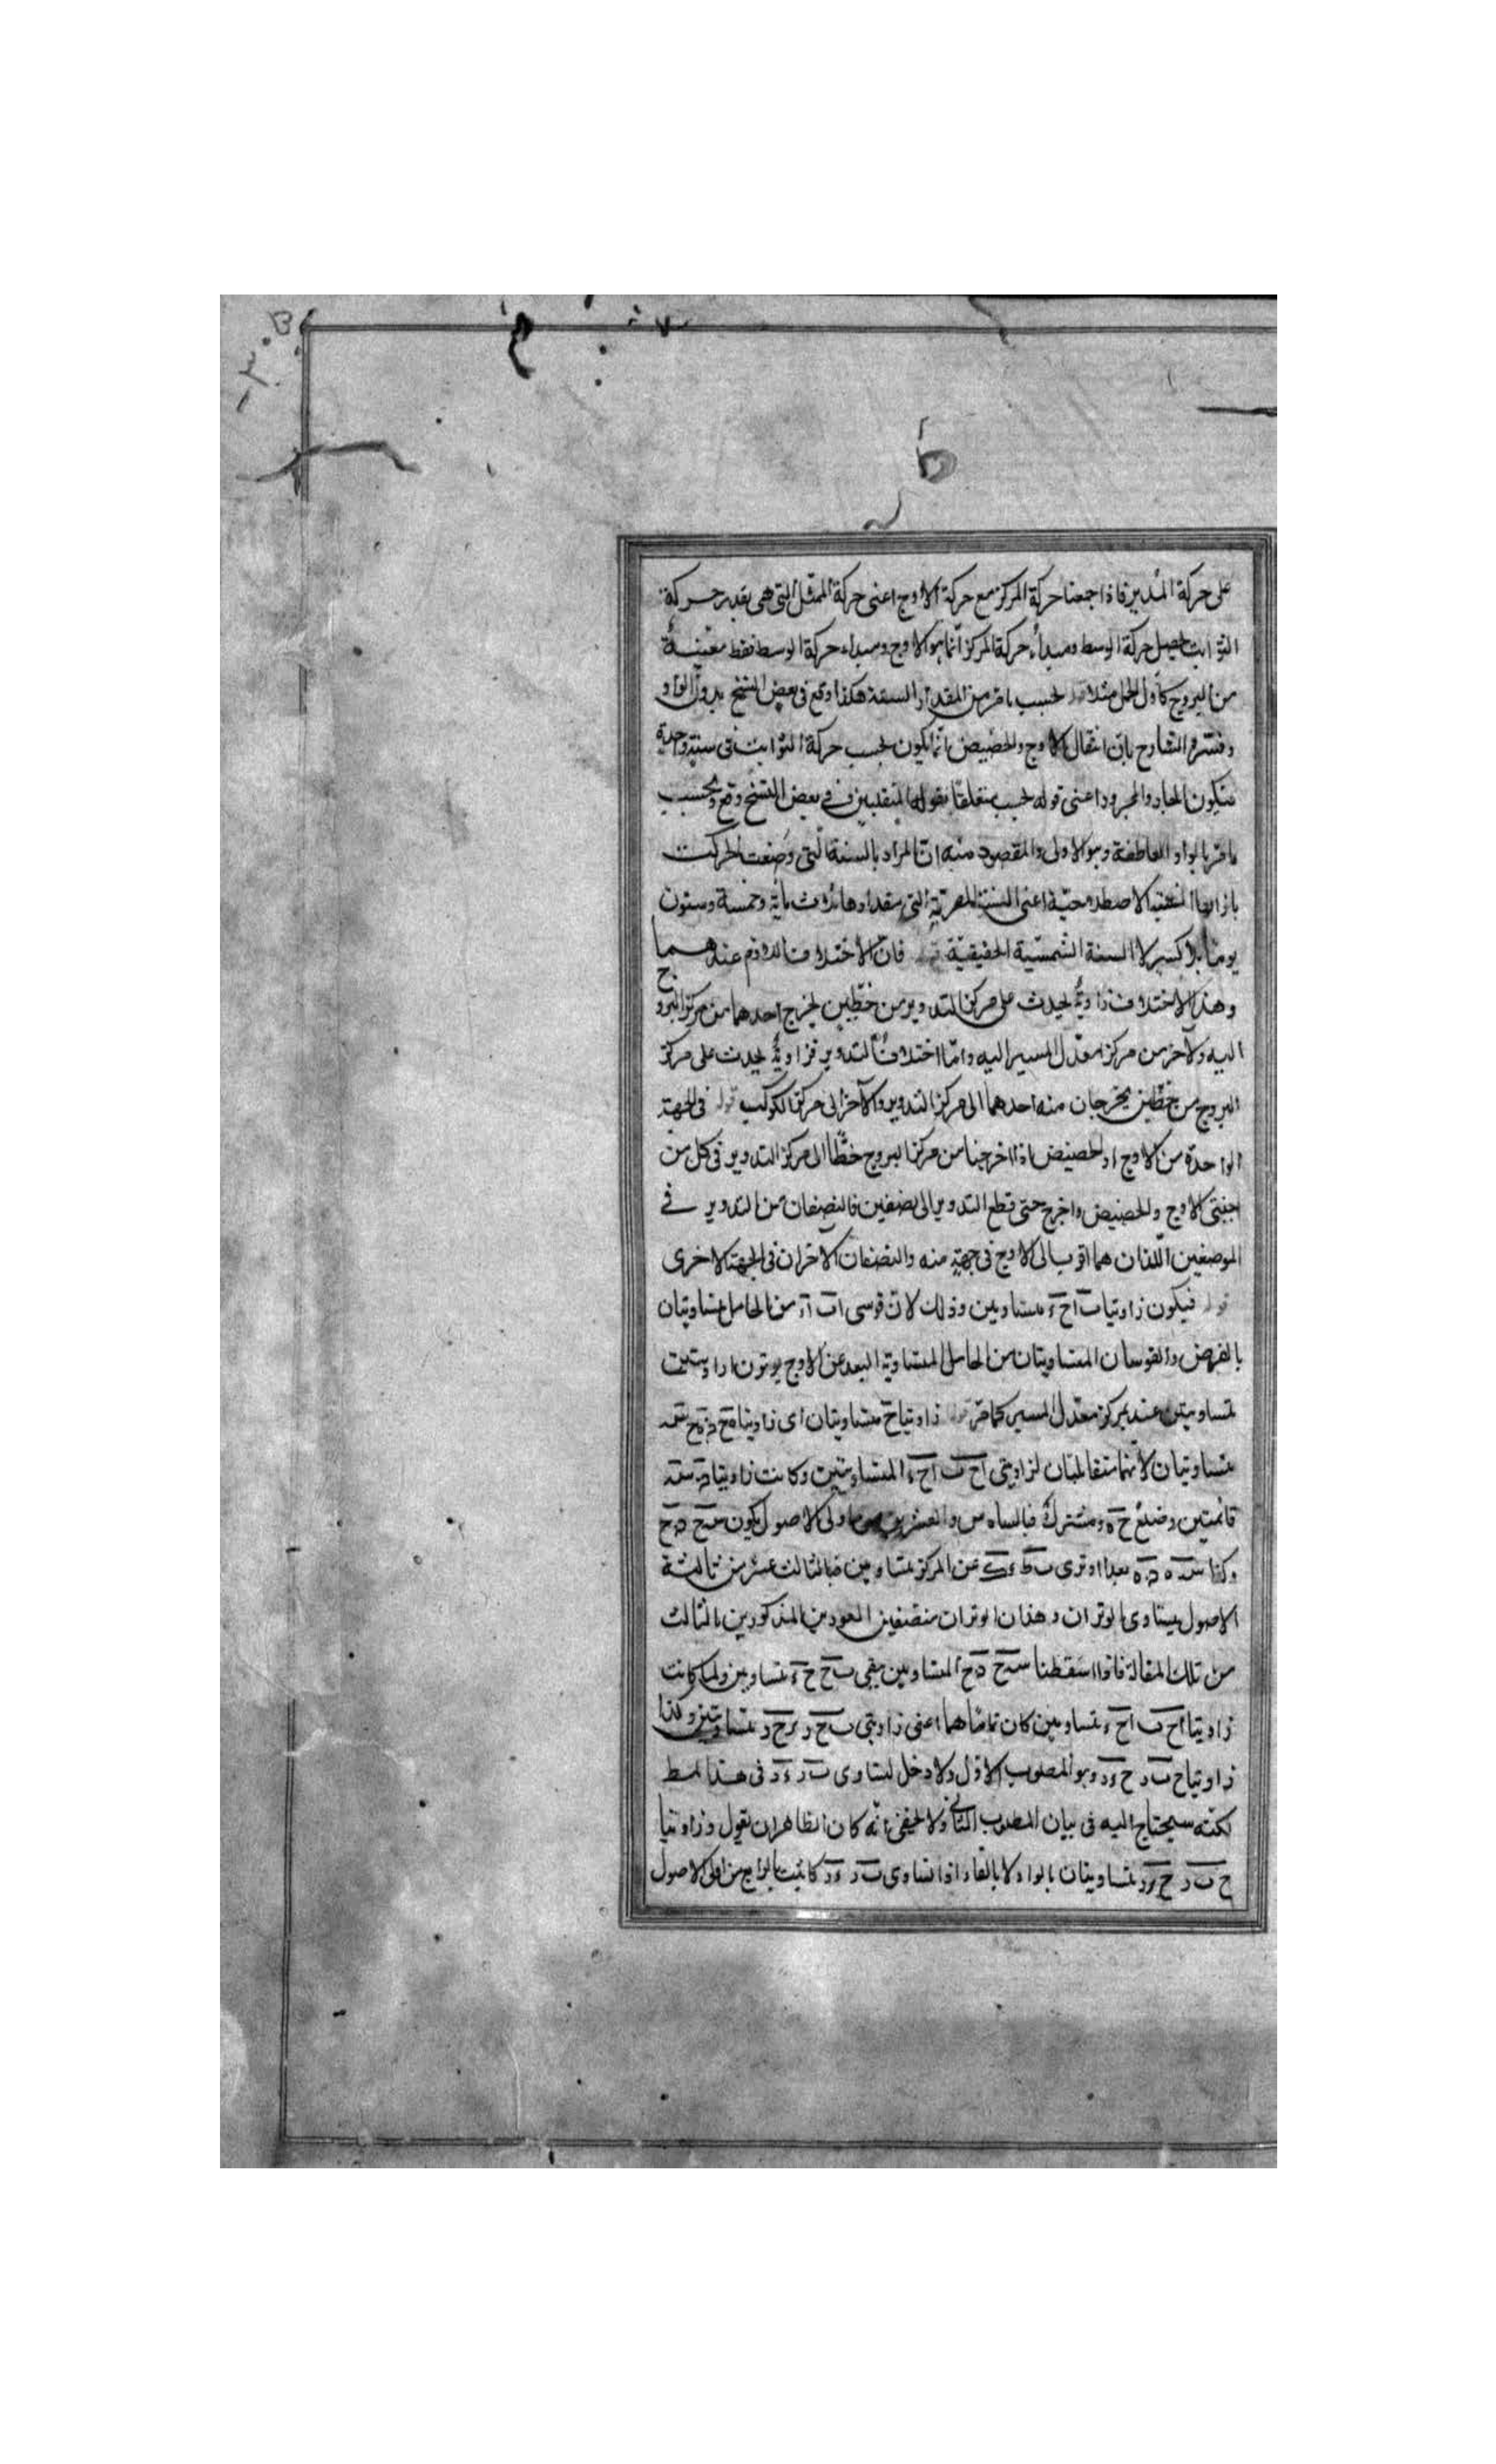 على حركة المدير فاذا جمعنا حركة المركز مع حركة الاوج اعنى حركة الممثل التى هى بقدر حركة
الثوابت يحصل حركة الوسط ومبدأ حركة المركز انما هو الاوج ومبداء حركة الوسط نقطة معينة
من البروج كأول الحمل مثلا قوله بحسب ما مر من المقدار السنة هكذا وقع فى بعض النسخ بدون الواو
وفسره الشارح بان انتقال الاوج والحضيض انما يكون بحسب حركة الثوابت فى سنة واحدة
فيكون الجار والمجرور اعنى قوله بحسب متعلقا بقوله المنتقلين وفى بعض النسخ وقع وبحسب
ما مر بالواو العاطفة وهو الاولى والمقصود منه ان المراد بالسنة التى وضعت الحركت
بازائها السنة الاصطلاحية اعنى السنة المصرية التى مقدارها ثلاث مائة وخمسة وستون
يوما بلا كسر لا السنة الشمسية الحقيقية قوله فان الاختلاف اللازم عندهما
وهذا الاختلاف زاوية يحدث على مركز التدوير من خطين يخرج احدهما من مركز البروج
اليه والآخر من مركز معدل المسير اليه واما اختلاف التدوير فزاوية يحدث على مركز
البروج من خطين يخرجان منه احدهما الى مركز التدوير والآخر الى مركز الكوكب قوله فى الجهة
الواحدة من الاوج او الحضيض اذا اخرجنا من مركز البروج خطا الى مركز التدوير فى كل من
جنبتى الاوج والحضيض واخرج حتى قطع التدوير الى نصفين فالنصفان من التدوير فى
الموضعين اللذان هما اقرب الى الاوج فى جهة منه والنصفان الاخران فى الجهة الاخرى
قوله فيكون زاويتا ب ا ح ء متساويين وذلك لان قوسى ا ب ا ء من الحامل متساويتان
بالفرض والقوسان المتساويتان من الحامل المتساوية البعد عن الاوج يوتران زاويتين
متساويتين عند مركز معدل المسير كما مر قوله زاويتا ح متساويتان اى زاويتا
متساويتان لانهما متقابلتان لزاويتى ا ح ب ا ح ء المتساويتين وكانت زاويتا
قائمتين وضلع ح ه مشترك فبالسادس والعشرين من اولى الاصول يكون س ح ح
وكذا بعدا وترى ب ط ء ك عن المركز متساويين فبالثالث عشر من ثالثة
الاصول يتساوى الوتران وهذان الوتران منتصفين العمودين المذكورين بالثالث
من تلك المقالة فاذا اسقطنا س ح ح المتساويين يبقى ب ح ح ء متساويين ولما كانت
زاويتا ا ح ب ا ح ء متساويين كان تماماهما اعنى زاويتى ب ح ر ء ح ر متساويتين وكذا
زاويتا ح ب ر ح ء ر وهو المطلوب الاول ولا دخل لتساوى ب ر ء ر فى هذا المط
لكنه سيحتاج اليه فى بيان المطلوب الثانى ولا يخفى انه كان الظاهر ان يقول وزاويتا
ح ب ر ح ء ر متساويتان بالواو لا بالفاء اذا تساوى ب ر ء ر كانت بالرابع من اولى الاصول